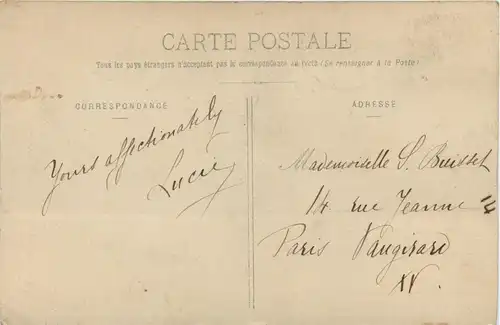 CARTE POSTALE
Tous les pays étrangers n'acceptent pas la correspondance au verso (Se renseigner à la Poste)
CORRESPONDANCE
ADRESSE
Yours affectionately
Lucie
Mademoiselle S. Buisset
14 rue Jeanne
14
Paris Vaugirard
XV.